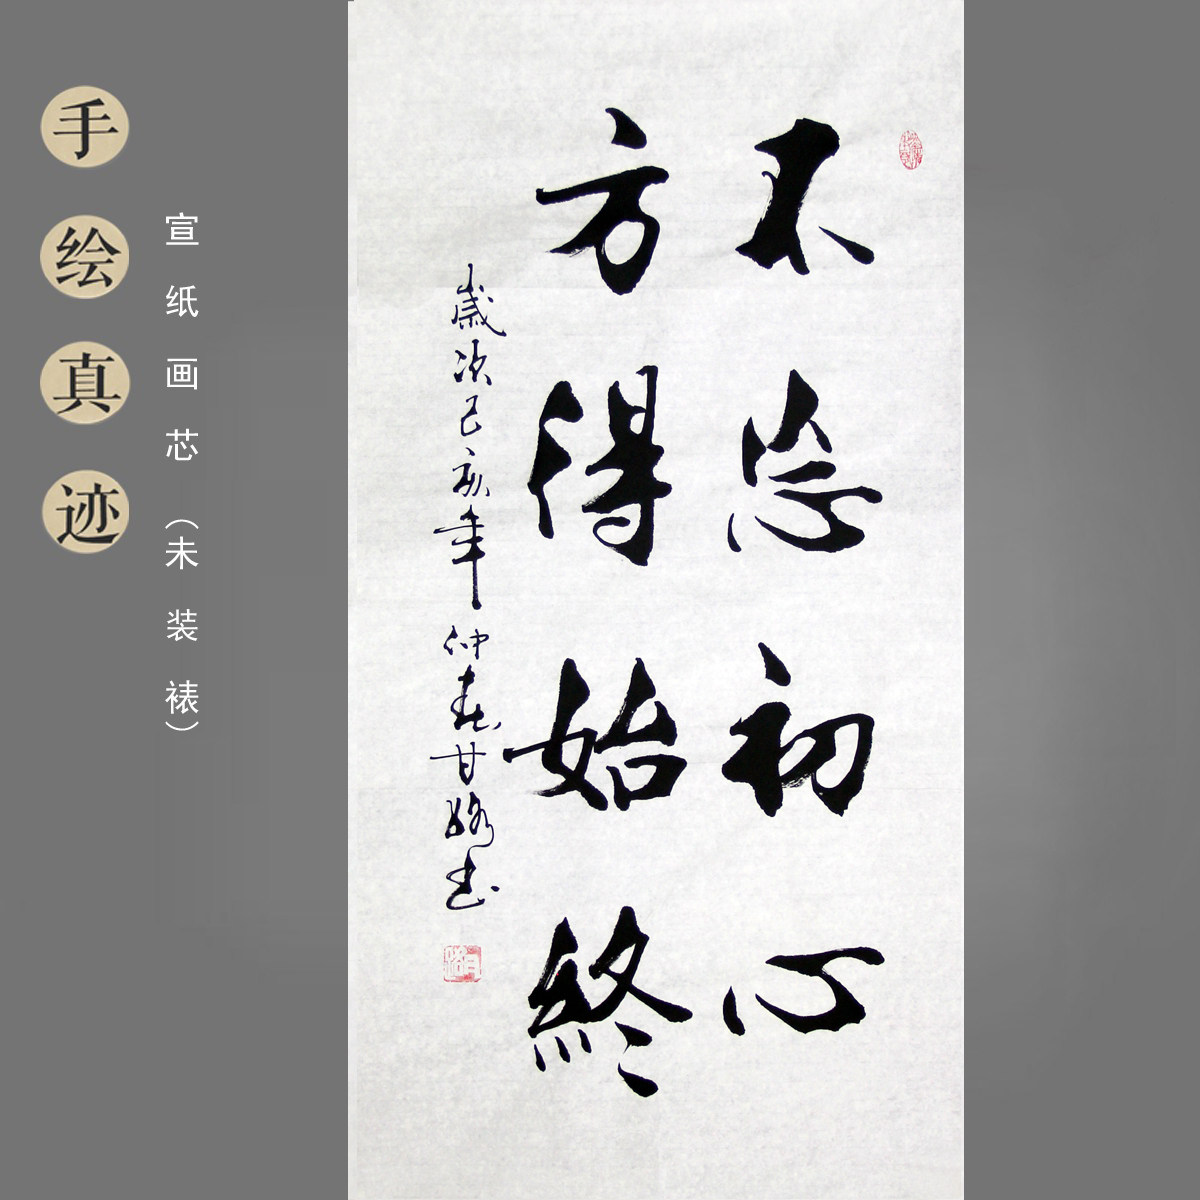 手绘真迹
宣纸画芯（未装裱）
不忘初心
方得始終
歲次己亥年仲春甘路书